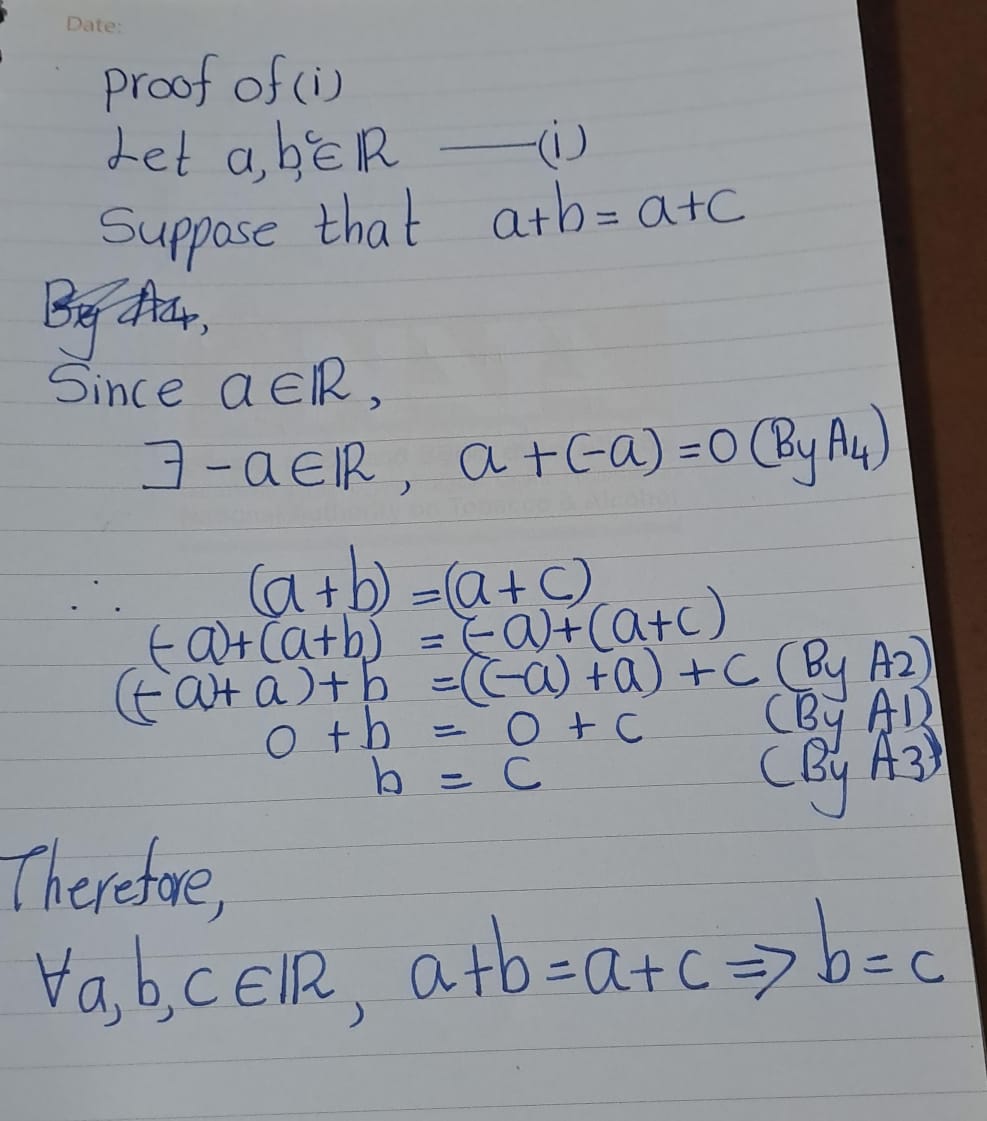 Date:
Proof of (i)
Let a, b, c ∈ ℝ —(i)
Suppose that a+b = a+c
By A4,
Since a ∈ ℝ,
∃ -a ∈ ℝ, a + (-a) = 0 (By A4)
∴ (a+b) = (a+c)
(-a)+(a+b) = (-a)+(a+c)
((-a)+a)+b = ((-a)+a)+c (By A2)
0+b = 0+c (By A1)
b = c (By A3)
Therefore,
∀a,b,c ∈ ℝ, a+b = a+c ⇒ b = c